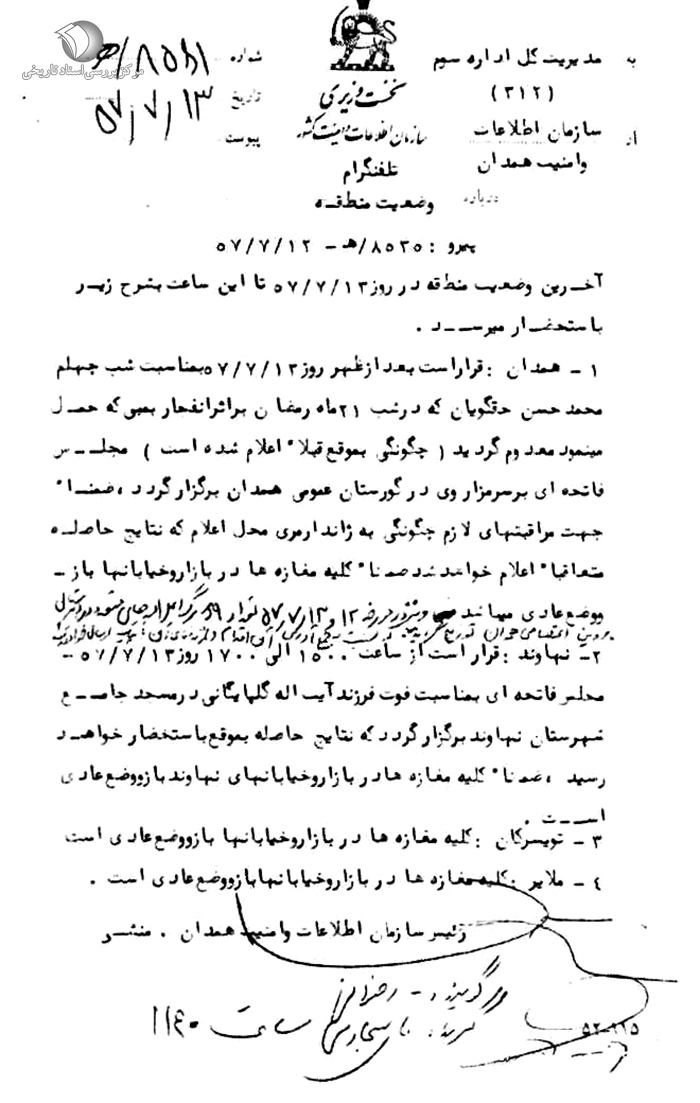 مرکز بررسی اسناد تاریخی
به مدیریت کل اداره سوم
(۳۱۲)
از سازمان اطلاعات
وامنیت همدان
نخست وزیری
سازمان اطلاعات و امنیت کشور
تلفنگرام
درباره وضعیت منطقه
شماره ۸۵۵۱/هـ
تاریخ ۵۷/۷/۱۳
پیوست
پیرو : ۸۵۳۰/هـ - ۵۷/۷/۱۲
آخرین وضعیت منطقه در روز ۵۷/۷/۱۳ تا این ساعت بشرح زیر
باستحضار میرسد .
۱ - همدان : قراراست بعد از ظهر روز ۵۷/۷/۱۳ بمناسبت شب چهلم
محمد حسن حقگویان که در شب ۲۱ ماه رمضان براثر انفجار بمبی که حمل
مینمود معدوم گردید ( چگونگی بموقع قبلاً اعلام شده است ) مجلس
فاتحه ای برسرمزار وی در گورستان عمومی همدان برگزار گردد ، ضمناً
جهت مراقبتهای لازم چگونگی به ژاندارمری محل اعلام که نتایج حاصله
متعاقباً اعلام خواهد شد ضمناً کلیه مغازه ها در بازار وخیابانها باز
ووضع عادی میباشد
۲- نهاوند : قرار است از ساعت ۱۵۰۰ الی ۱۷۰۰ روز ۵۷/۷/۱۳ -
مجلس فاتحه ای بمناسبت فوت فرزند آیت اله گلپایگانی در مسجد جامع
شهرستان نهاوند برگزار گردد که نتایج حاصله بموقع باستحضار خواهد
رسید ، ضمناً کلیه مغازه ها در بازار وخیابانهای نهاوند باز ووضع عادی
است .
۳ - تویسرکان : کلیه مغازه ها در بازار وخیابانها باز ووضع عادی است
٤ - ملایر : کلیه مغازه ها در بازار وخیابانها باز ووضع عادی است .
رئیس سازمان اطلاعات وامنیت همدان . منشر
گوینده -
گیرنده : ساعت ۱۱۴۰